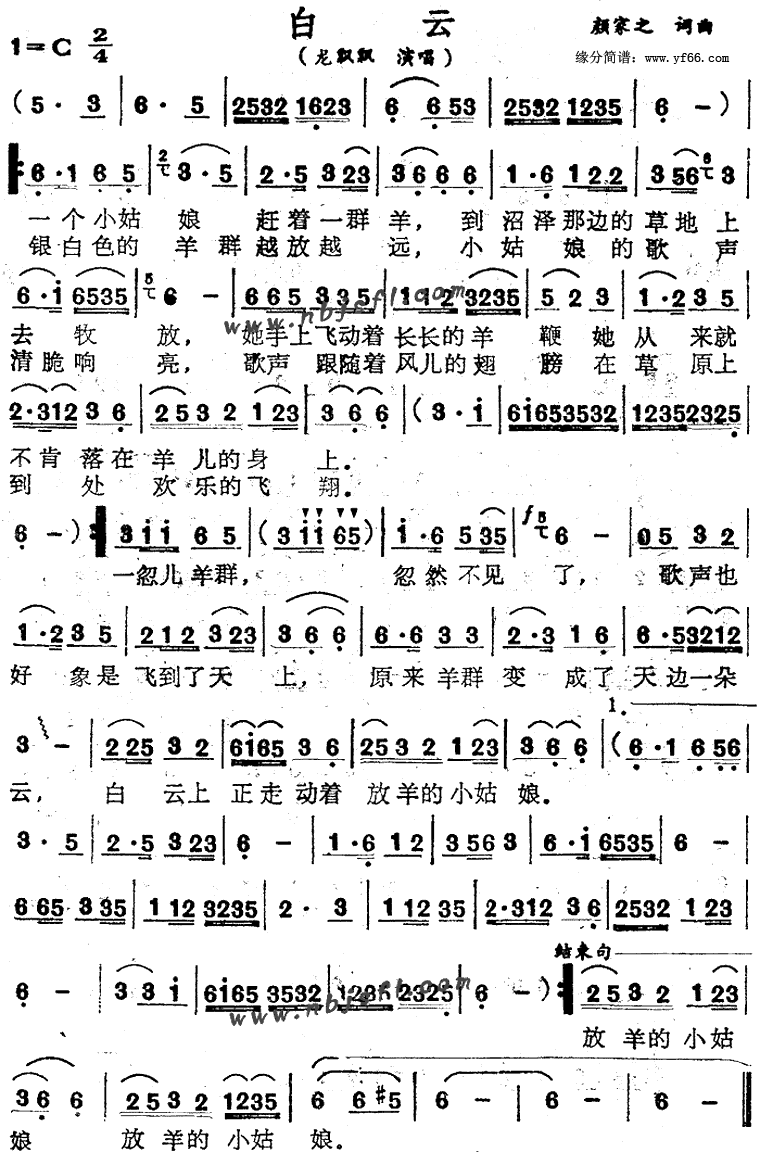 白 云
1=C 2/4
(龙飘飘 演唱)
颜家之 词曲
缘分简谱：www.yf66.com
(5· 3 | 6· 5 | 2532 1623 | 6 6 53 | 2532 1235 | 6 －)
6·1 6 5 | 3·5 | 2·5 323 | 3 6 6 6 | 1·6 122 | 356 3
一个小姑 娘 赶着一群 羊，到 沼泽那边的 草地 上
银白色的 羊 群 越放越 远，小 姑 娘 的 歌 声
6·i 6535 | 6 － | 665 335 | 112 3235 | 5 2 3 | 1·2 3 5
去 牧 放，她手上飞动着 长长的羊 鞭 她 从 来就
清脆响 亮，歌声 跟随着 风儿的翅 膀 在 草 原上
2·312 3 6 | 2 5 3 2 1 23 | 3 6 6 | (3· i | 6i653532 | 12352325
不肯 落在 羊 儿的身 上．
到 处 欢 乐的飞 翔．
6 －) | 3ii 6 5 | (3 ii 65) | i·6 5 35 | f 6 － | 05 3 2
一忽儿 羊群， 忽然 不见 了， 歌声也
1·2 3 5 | 212 323 | 3 6 6 | 6·6 3 3 | 2·3 1 6 | 6·53212
好 象是 飞到了天 上， 原来羊群 变 成了 天边一朵
1.
3 － | 2 25 3 2 | 6i65 3 6 | 25 3 2 1 23 | 3 6 6 | (6·1 6 56
云， 白 云上 正走动着 放羊的小姑 娘．
3· 5 | 2·5 323 | 6 － | 1·6 12 | 3 56 3 | 6·i 6535 | 6 －
665 335 | 112 3235 | 2· 3 | 112 35 | 2·312 3 6 | 2532 1 23
结束句
6 － | 3 3 i | 6i65 3532 | 1235 2325 | 6 －) | 2 5 3 2 1 23
www.nbjsfl.com
放 羊的 小姑
3 6 6 | 2 5 3 2 1235 | 6 6 #5 | 6 － | 6 － | 6 －
娘 放 羊的 小姑 娘．